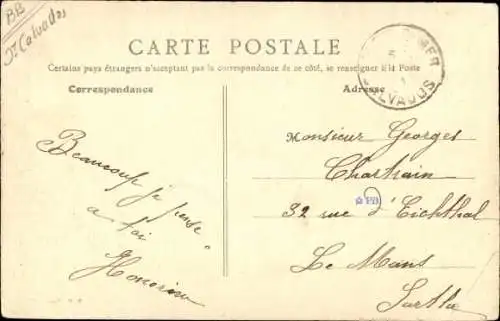 BB
Dt Calvados
CARTE POSTALE
Certains pays étrangers n'acceptant pas la correspondance de ce côté, se renseigner à la Poste
Correspondance
Adresse
MER
5
1
CALVADOS
Beaucoup je pense
a toi
Honorine
Monsieur Georges
Chartrain
32 rue d'Eichthal
Le Mans
Sarthe
PB